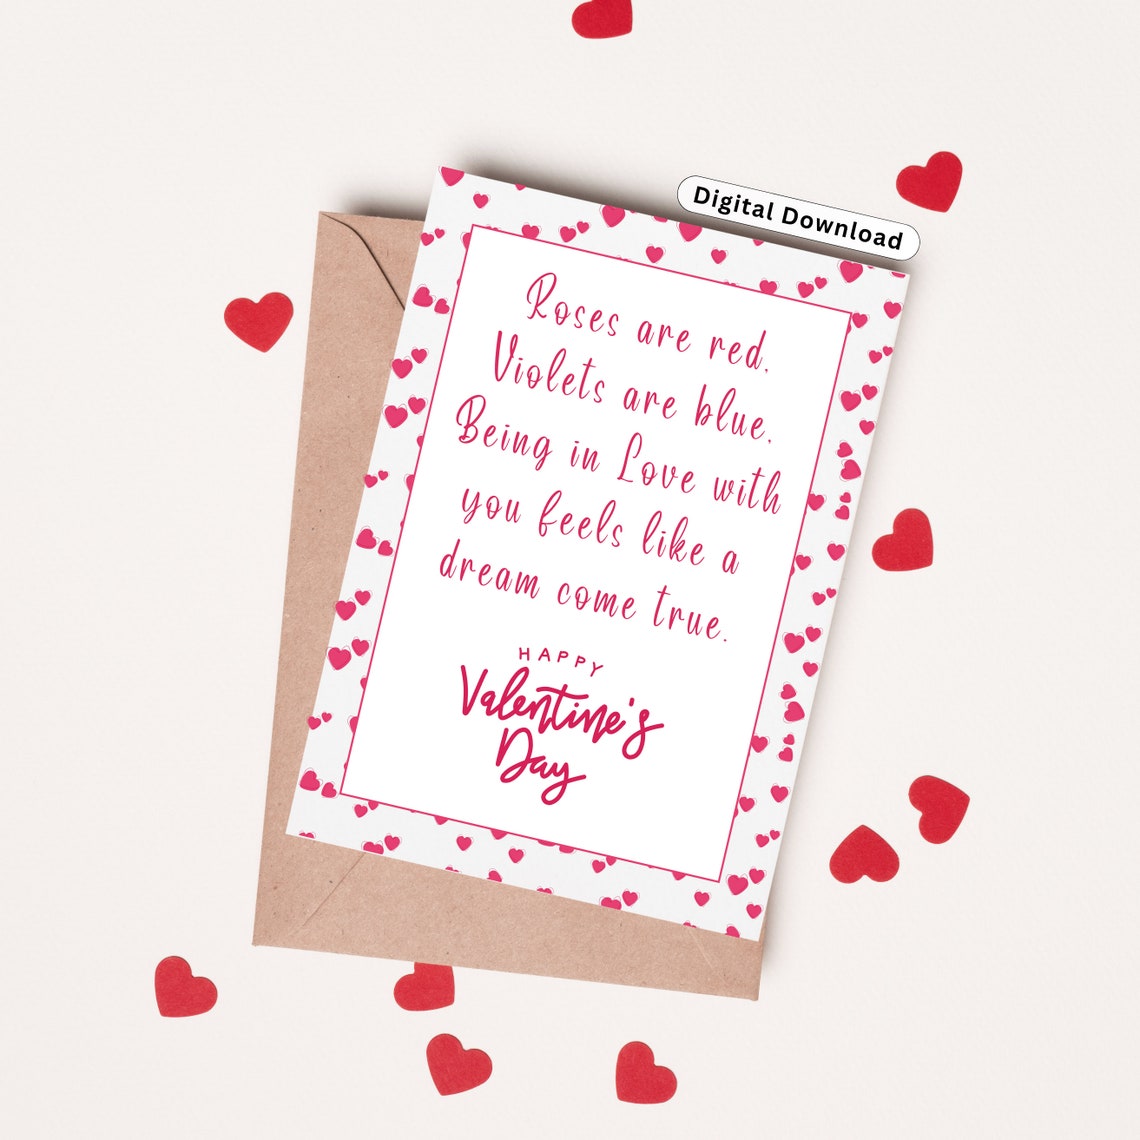 Digital Download
Roses are red,
Violets are blue,
Being in Love with
you feels like a
dream come true.
HAPPY
Valentine's
Day